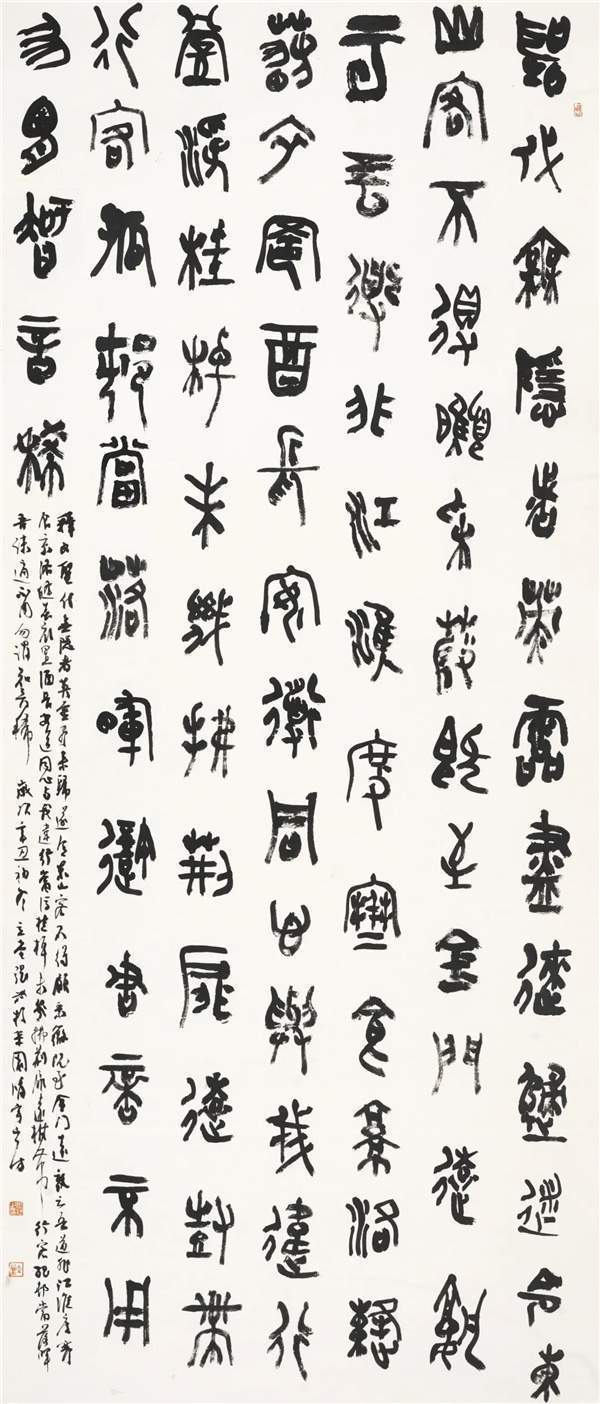 聖代無隱者英靈盡來歸遂令東
山客不得顧采薇既至金門遠孰
云吾道非江淮度寒食京洛縫
春衣置酒長安道同心與我違行
當浮桂棹未幾拂荊扉遠樹帶
行客孤邨當落暉吾謀適不用
勿謂知音稀
釋文聖代無隱者英靈盡來歸遂令東山客不得顧采薇既至金門遠孰云吾道非江淮度寒
食京洛縫春衣置酒長安道同心與我違行當浮桂棹未幾拂荊扉遠樹帶行客孤邨當落暉
吾謀適不用勿謂知音稀 歲次辛丑初冬